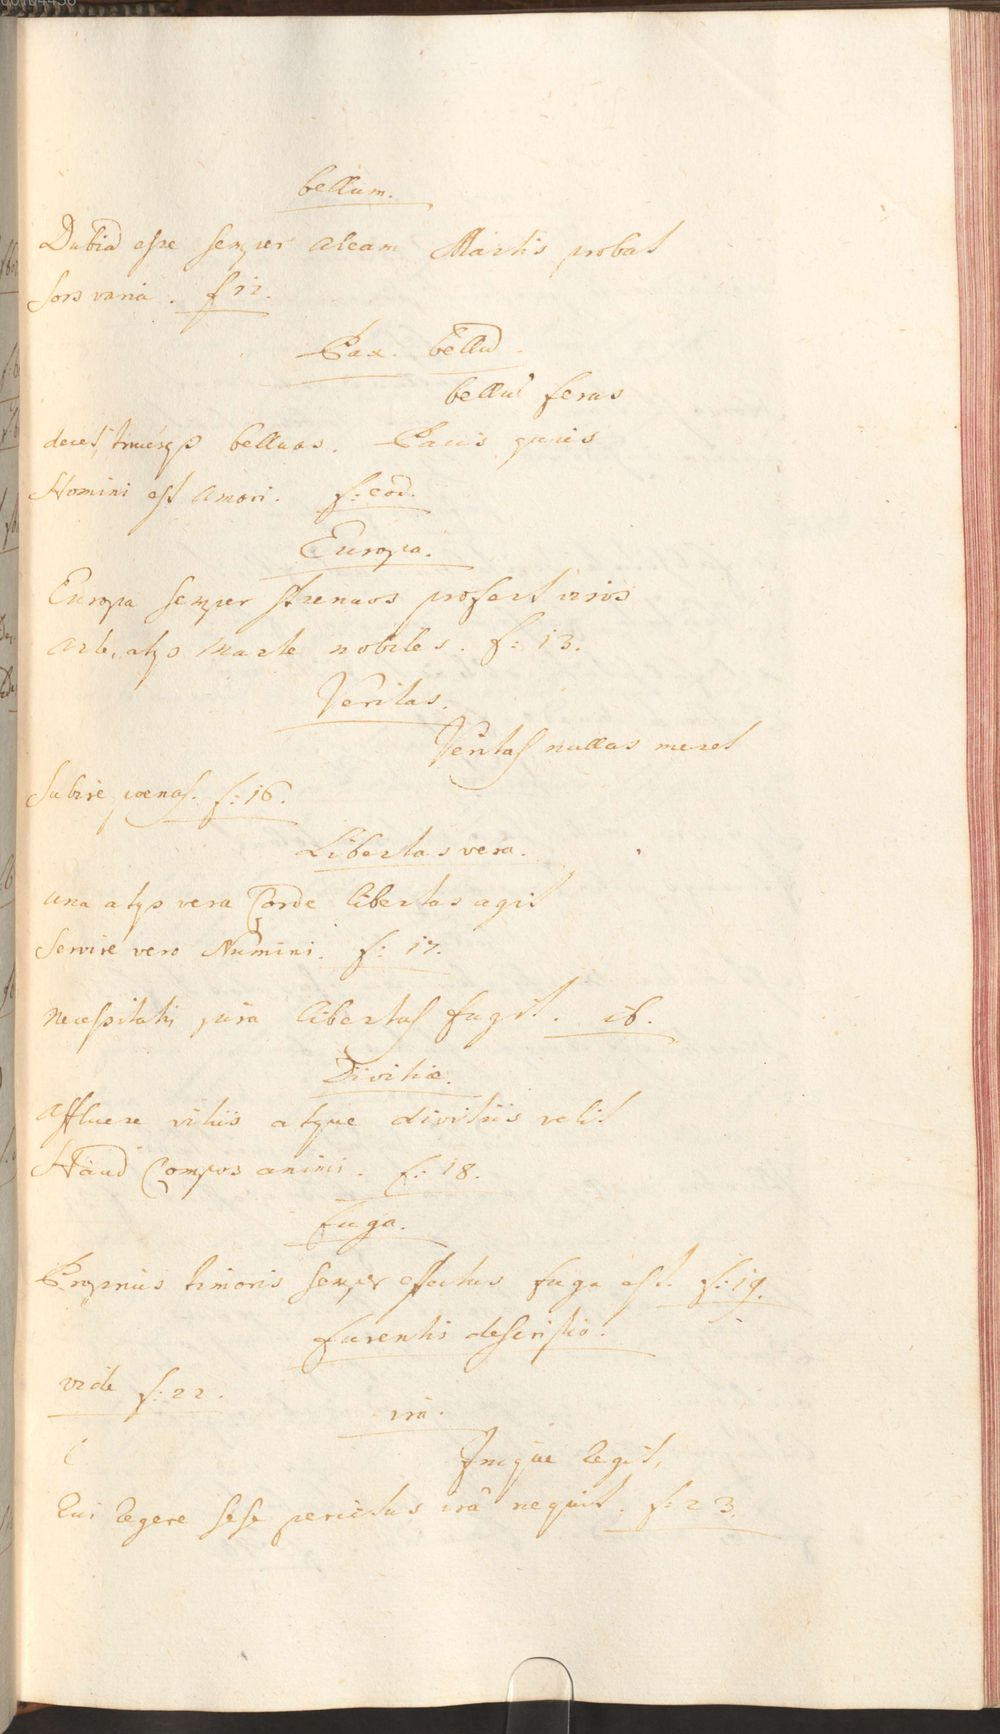 bellum.
Dubiã esse semper aleam Martis probat
sors varia. f 12.
Pax. bellũ.
bellũ feras
decet, trucesqȝ belluas. Pacis quies
Homini est amori. f: eod.
Europa.
Europa semper strenuos profert viros
arte, atqȝ Marte nobiles. f: 13.
Veritas.
Veritas nullas meret
subire poenas. f: 16.
Libertas vera.
una atqȝ vera Corde libertas agit
servire vero Numini. f: 17.
necessitatis jura libertas fugit. ib.
Divitiæ.
affluere vitiis atque divitiis velit
Haud Compos animi. f: 18.
fuga.
Proprius timoris semper effectus fuga est. f: 19.
furentis descriptio.
vide f: 22.
ira.
Inique regit,
Qui regere sese percitus irâ nequit. f: 23.